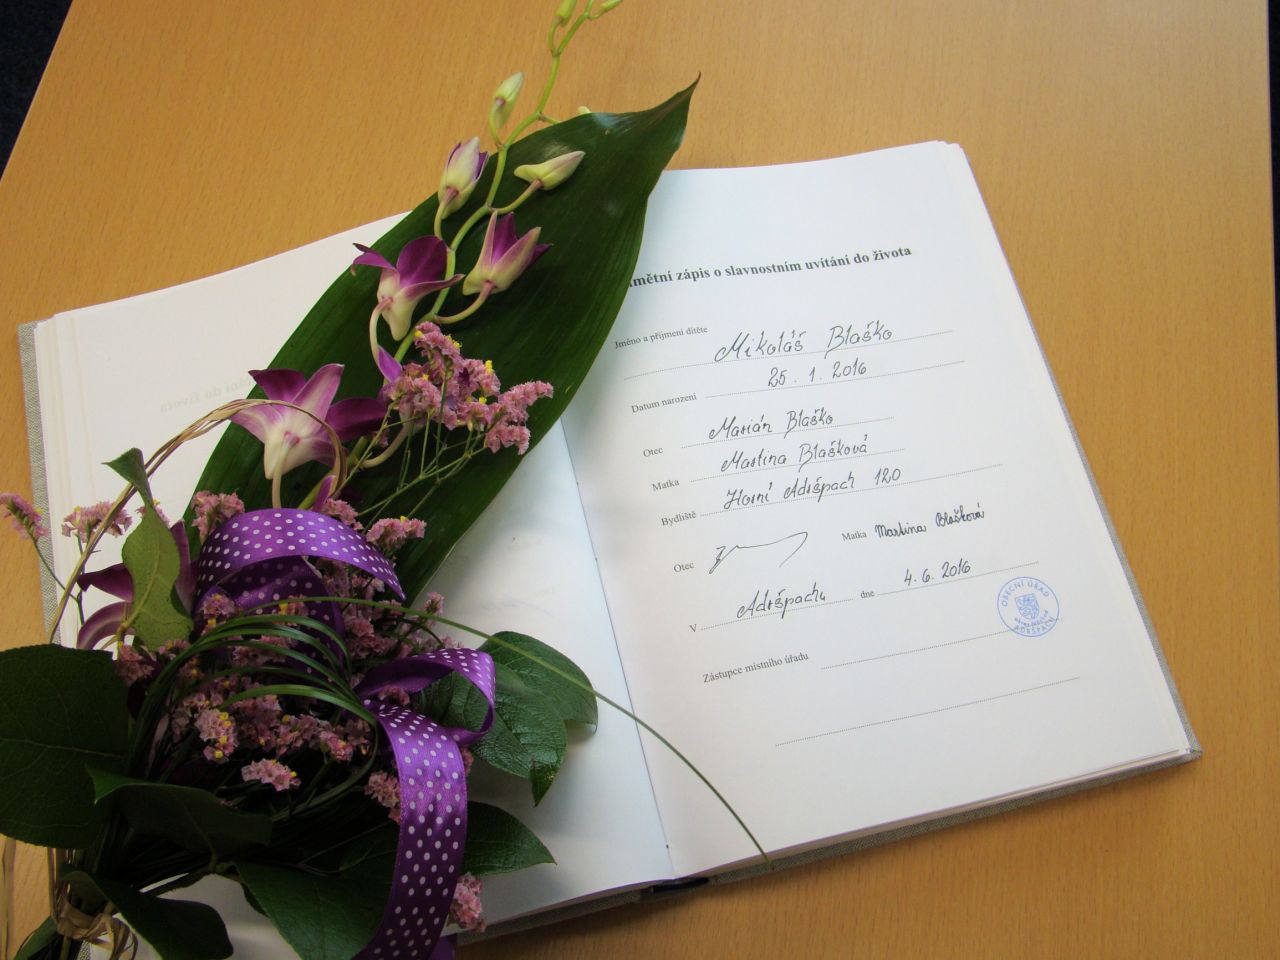 mětní zápis o slavnostním uvítání do života
Jméno a příjmení dítěte Mikoláš Blaško
Datum narození 25. 1. 2016
Otec Marián Blaško
Matka Martina Blašková
Bydliště Horní Adršpach 120
Otec Matka Martina Blašková
V Adršpachu dne 4. 6. 2016
OBECNÍ ÚŘAD
ADRŠPACH
Zástupce místního úřadu